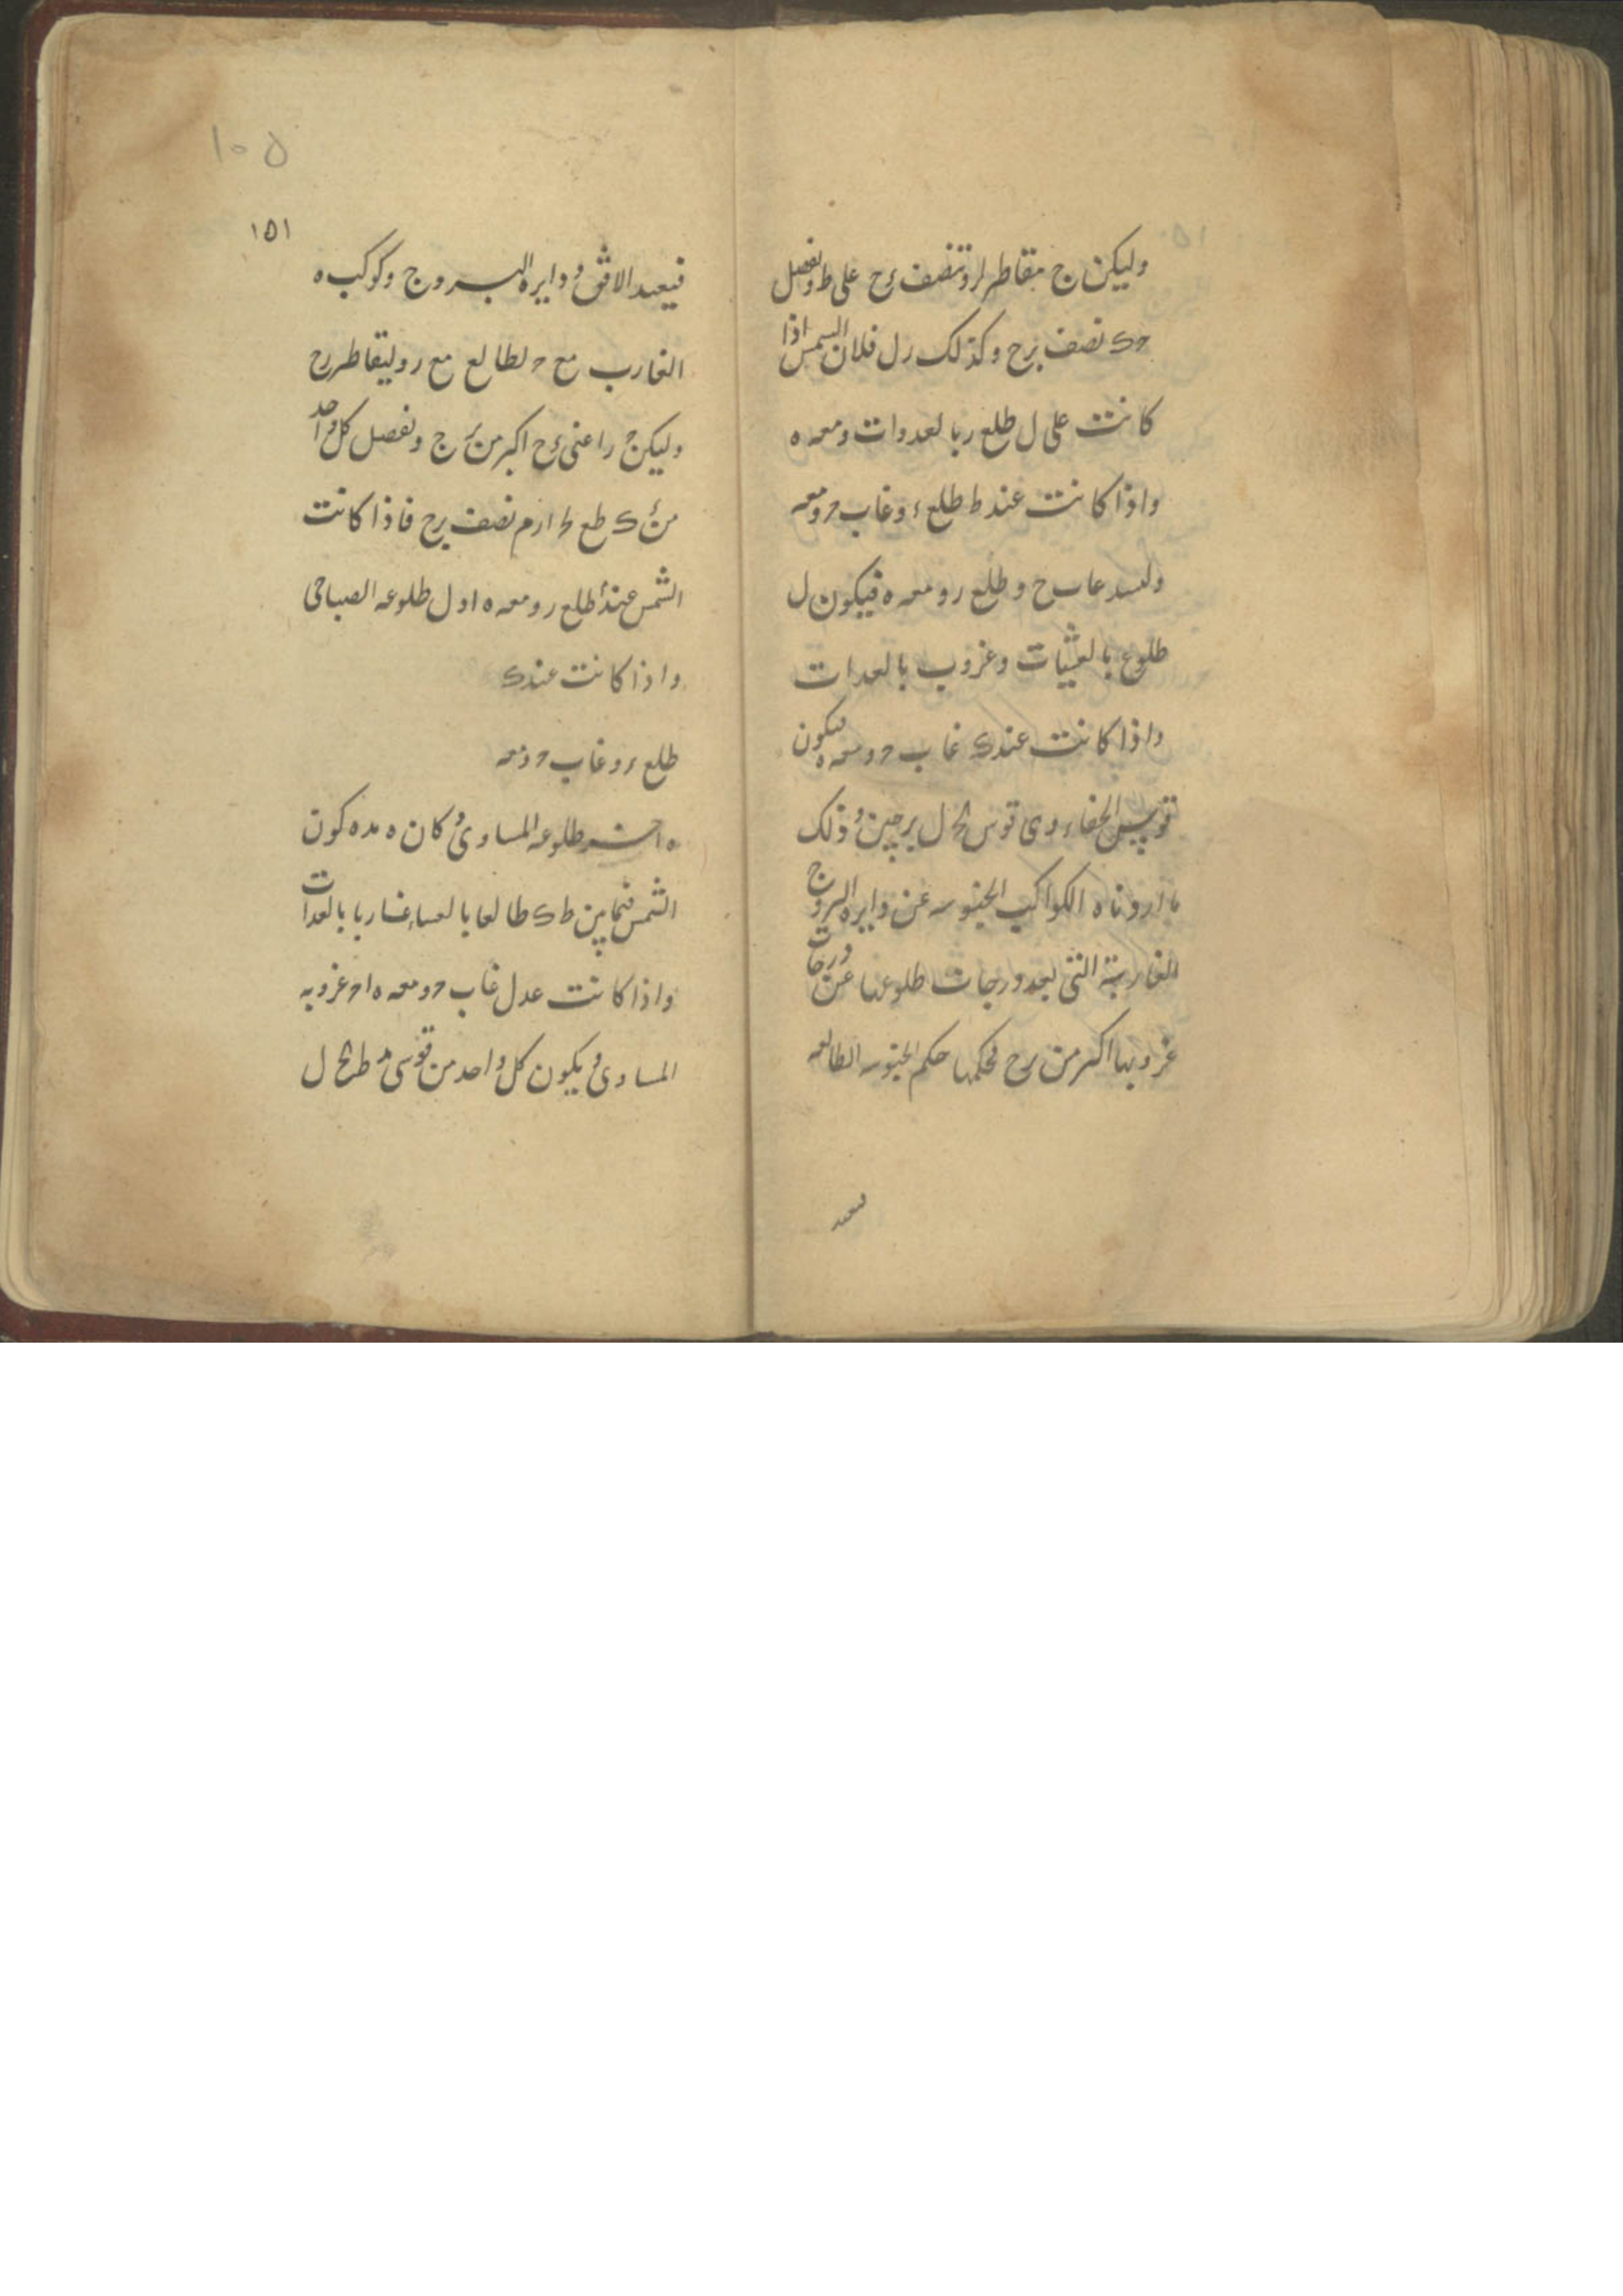 وليكن ج مقاطر لر وتنصف رح على ط ونفصل
حک نصف برح وكذلك رل فلان الشمس اذا
كانت على ل طلع ر بالغدوات ومعه ه
واذا كانت عند ط طلع ر وغاب ح ومعه
غاب ح وطلع ر ومعه ه فيكون ل
طلوع بالعشيات وغروب بالغدات
واذا كانت عند ک غاب ح ومعه ه فيكون
قوس الخفاء وهى قوس ل برجين وذلك
ما اردناه الكواكب الجنوبيه عن دايره البروج
الغاربة التى بعد درجات طلوعها عن درجات
غروبها اكثر من برح فحكمها حكم الجنوبيه الطالعه
فيعيد
١٠٥
١٥١
فيعيد الافق ودايره البروج وكوكب ه
الغارب مع ح الطالع مع ر وليقاطر رح
وليكن ج ر اعنى رح اكبر من برج ونفصل كل واحد
من نصف برح فاذا كانت
الشمس عند ط طلع ر ومعه ه اول طلوعه الصباحى
واذا كانت عند ک
طلع ر وغاب ح ومعه
ه اخر طلوعه المساوى وكان ه مده كون
الشمس فيما بين ط ک طالعا بالعشاء غاربا بالغدات
واذا كانت عند ل غاب ح ومعه ه اخر غروبه
المساوى ويكون كل واحد من قوسى